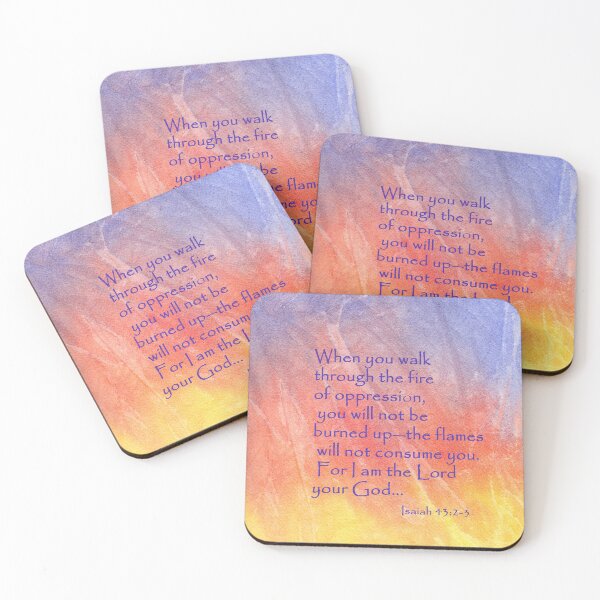 When you walk
through the fire
of oppression,
you will not be
the flames
you.
Lord
When you walk
through the fire
of oppression,
you will not be
burned up—the flames
will not consume you.
For I am the Lord
When you walk
through the fire
of oppression,
you will not be
burned up—the flames
will not consume
For I am the
your God...
When you walk
through the fire
of oppression,
you will not be
burned up—the flames
will not consume you.
For I am the Lord
your God...
Isaiah 43:2-3